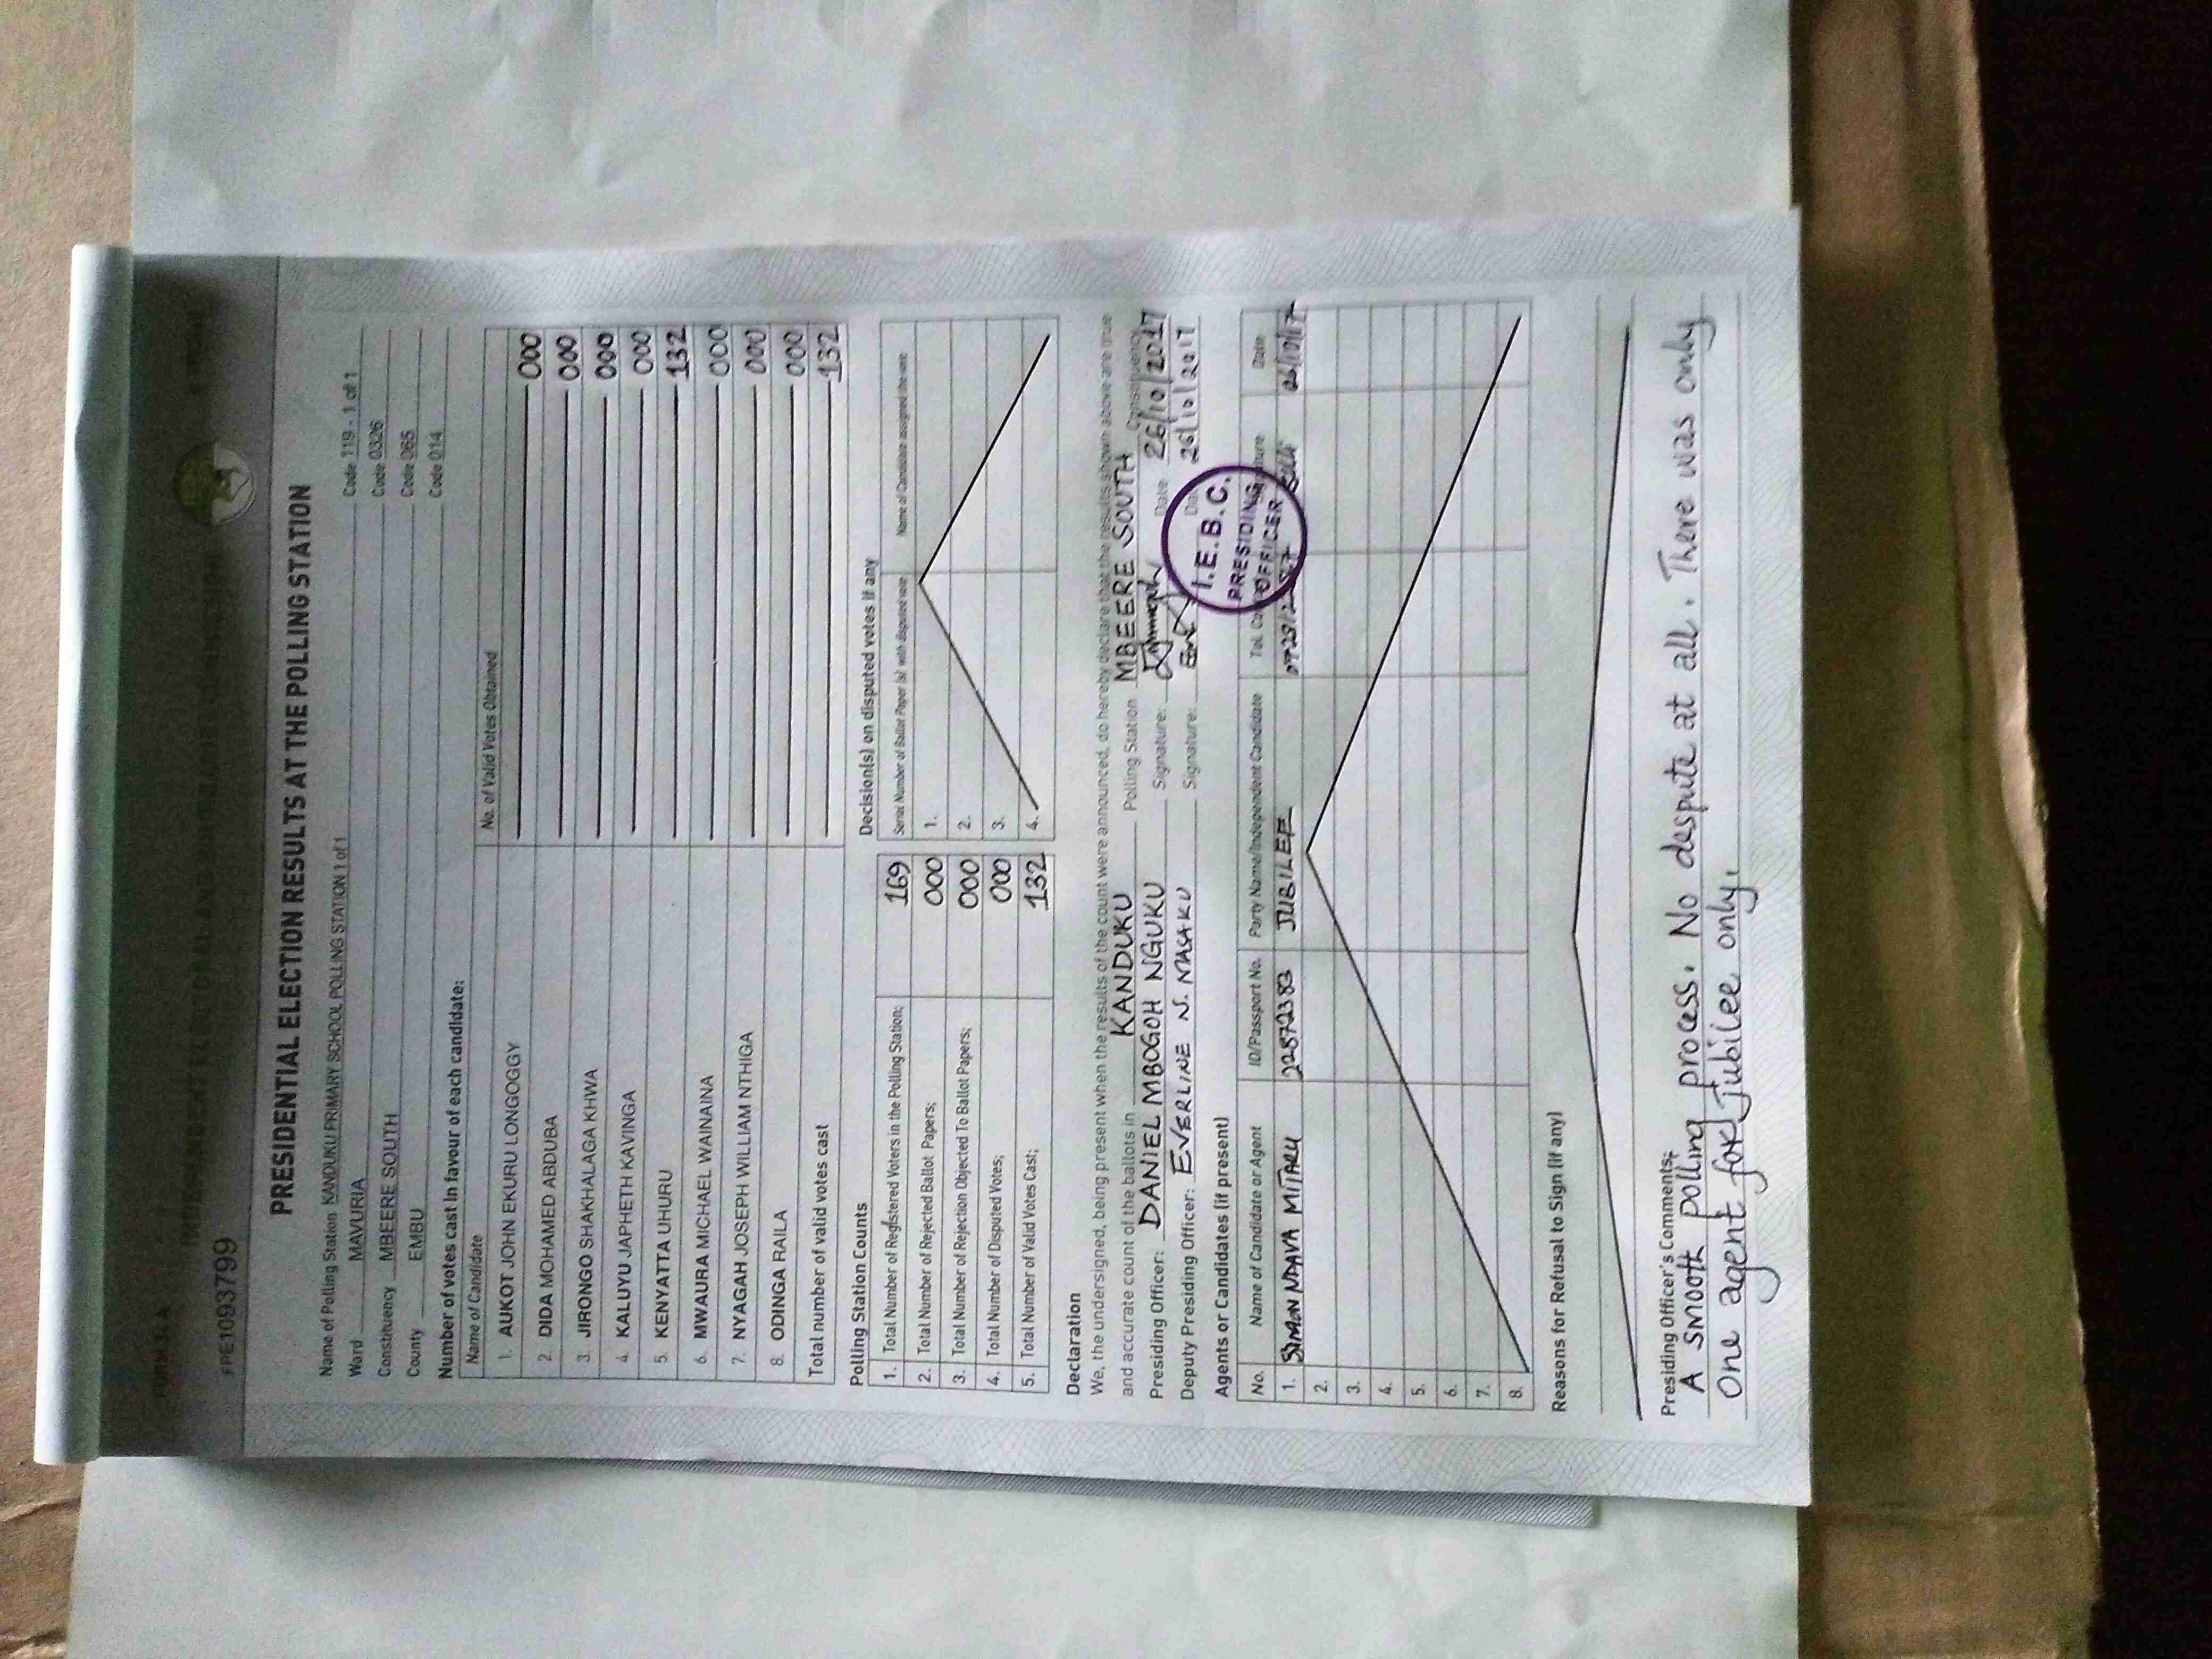 FPE1093799
PRESIDENTIAL ELECTION RESULTS AT THE POLLING STATION
Name of Polling Station KANDUKU PRIMARY SCHOOL POLLING STATION 1 of 1 Code 119 - 1 of 1
Ward MAVURIA Code 0326
Constituency MBEERE SOUTH Code 065
County EMBU Code 014
Number of votes cast in favour of each candidate:
Name of Candidate No. of Valid Votes Obtained
1. AUKOT JOHN EKURU LONGOGGY 000
2. DIDA MOHAMED ABDUBA 000
3. JIRONGO SHAKHALAGA KHWA 000
4. KALUYU JAPHETH KAVINGA 000
5. KENYATTA UHURU 132
6. MWAURA MICHAEL WAINAINA 000
7. NYAGAH JOSEPH WILLIAM NTHIGA 000
8. ODINGA RAILA 000
Total number of valid votes cast 132
Polling Station Counts
1. Total Number of Registered Voters in the Polling Station; 169
2. Total Number of Rejected Ballot Papers; 000
3. Total Number of Rejection Objected To Ballot Papers; 000
4. Total Number of Disputed Votes; 000
5. Total Number of Valid Votes Cast; 132
Decision(s) on disputed votes if any
Serial Number of Ballot Paper (s) with disputed vote Name of Candidate assigned the vote
1.
2.
3.
4.
Declaration
We, the undersigned, being present when the results of the count were announced, do hereby declare that the results shown above are true
and accurate count of the ballots in KANDUKU Polling Station MBEERE SOUTH Constituency
Presiding Officer: DANIEL MBOGOH NGUKU Signature: Date 26/10/2017
Deputy Presiding Officer: EVERLINE N. MASAKU Signature: 26/10/2017
I.E.B.C.
PRESIDING
OFFICER
Agents or Candidates (if present)
No. Name of Candidate or Agent ID/Passport No. Party Name/Independent Candidate Tel. Date
1. SIMON 22872383 JUBILEE 26/10/17
2.
3.
4.
5.
6.
7.
8.
Reasons for Refusal to Sign (if any)
Presiding Officer's Comments;
A smooth polling process. No despute at all. There was only
One agent for jubilee only.